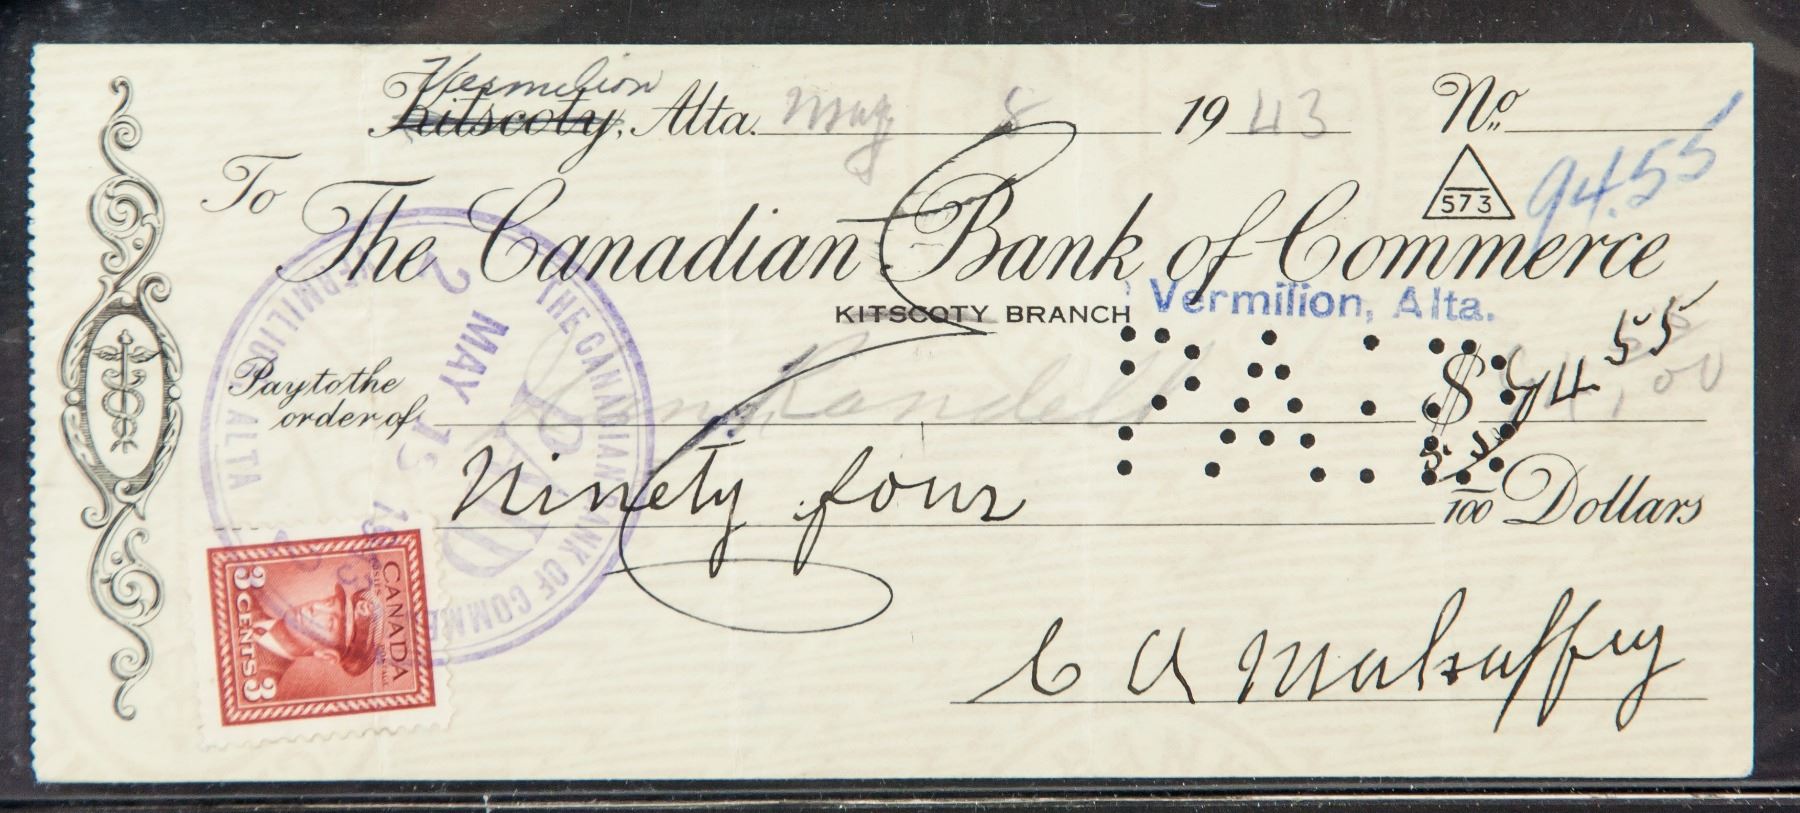 Vermilion
Kitscoty, Alta. May 8 1943 No.
94.55
573
To The Canadian Bank of Commerce
KITSCOTY BRANCH Vermilion, Alta.
Pay to the
order of Randell $ 94 55
PAID
Ninety four /100 Dollars
THE CANADIAN BANK OF COMME
VERMILION ALTA
PAID
2 MAY 15 19
CANADA
POSTES POSTAGE
3 CENTS 3